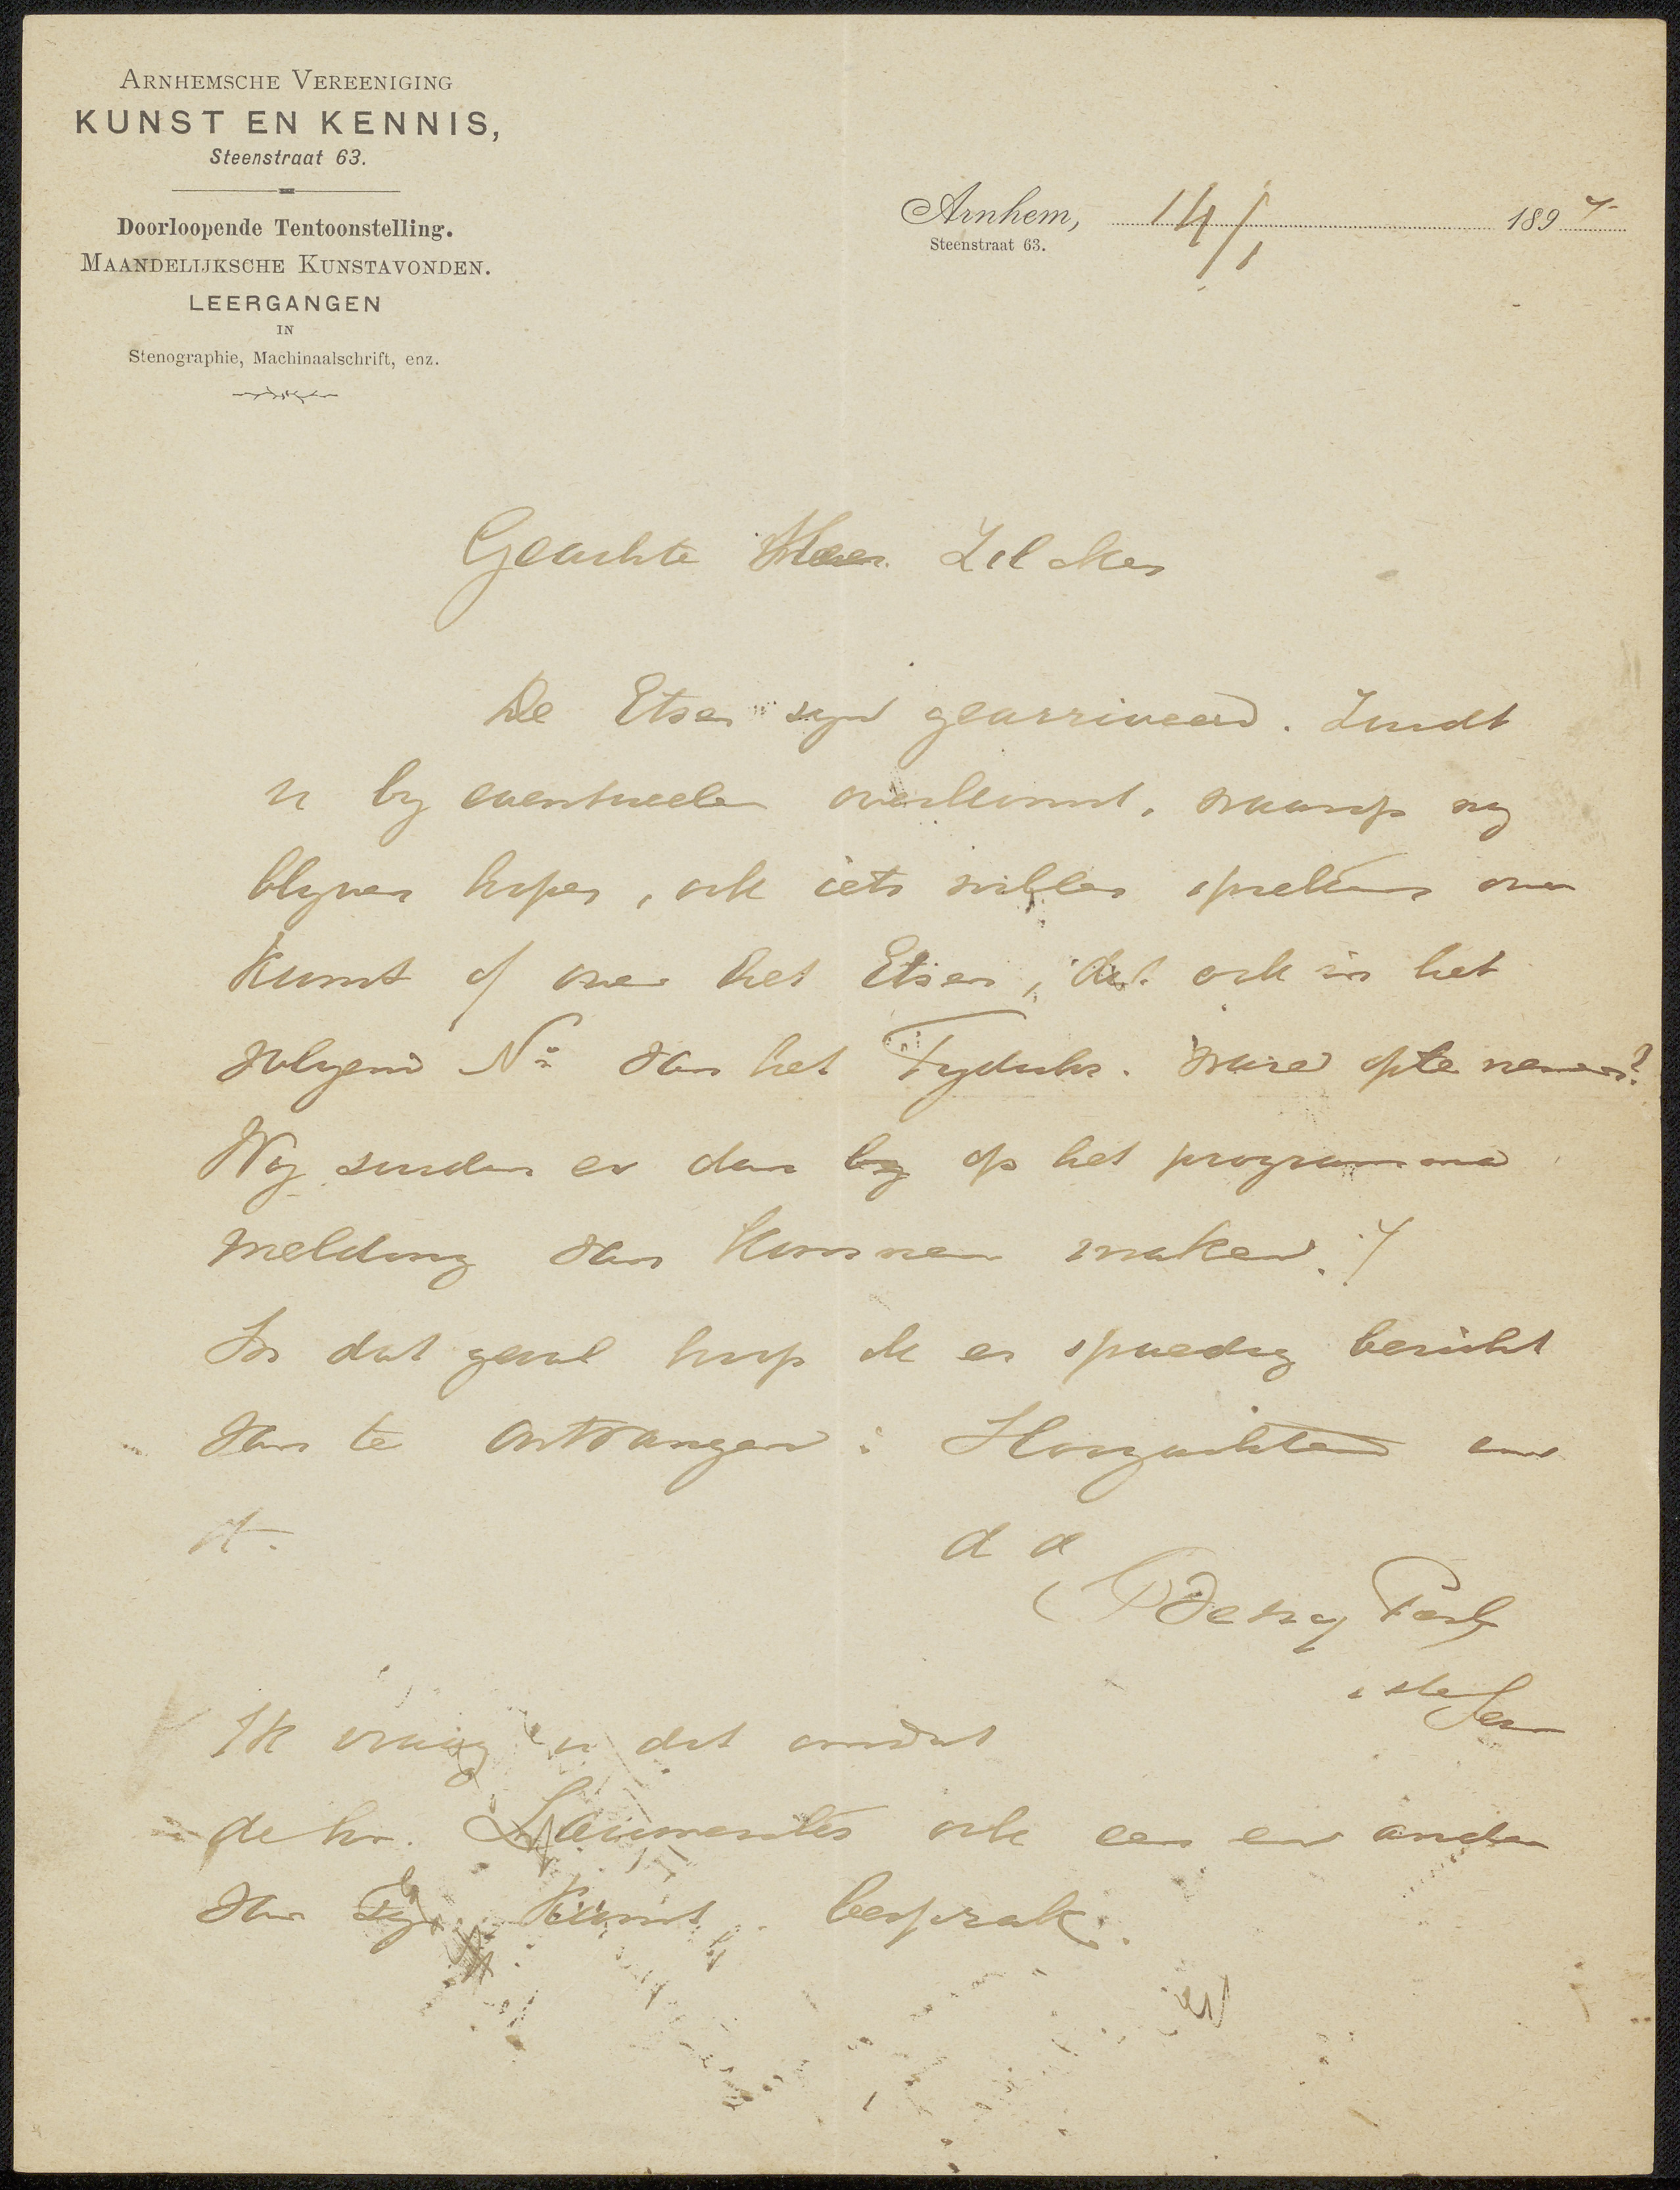 ARNHEMSCHE VEREENIGING
KUNST EN KENNIS,
Steenstraat 63.
Doorloopende Tentoonstelling.
MAANDELIJKSCHE KUNSTAVONDEN.
LEERGANGEN
IN
Stenographie, Machinaalschrift, enz.
Arnhem, 14/1 189
Steenstraat 63.
Geachte Heer Zilcken
De Etsen zyn gearriveerd. Zoudt
u by eventueele overkomst, waarop wy
blyven hopen, ook iets willen spreken over
Kunst of over het Etsen, dat ook in het
volgend No van het Tydschr. ware op te nemen?
Wy zouden er dan by op het programma
melding van kunnen maken.
In dat geval hoop ik er spoedig bericht
van te ontvangen: Hoogachtend
d d
Ik vraag u dat omdat
de hr. ook een en ander
van zyn Kunst besprak.